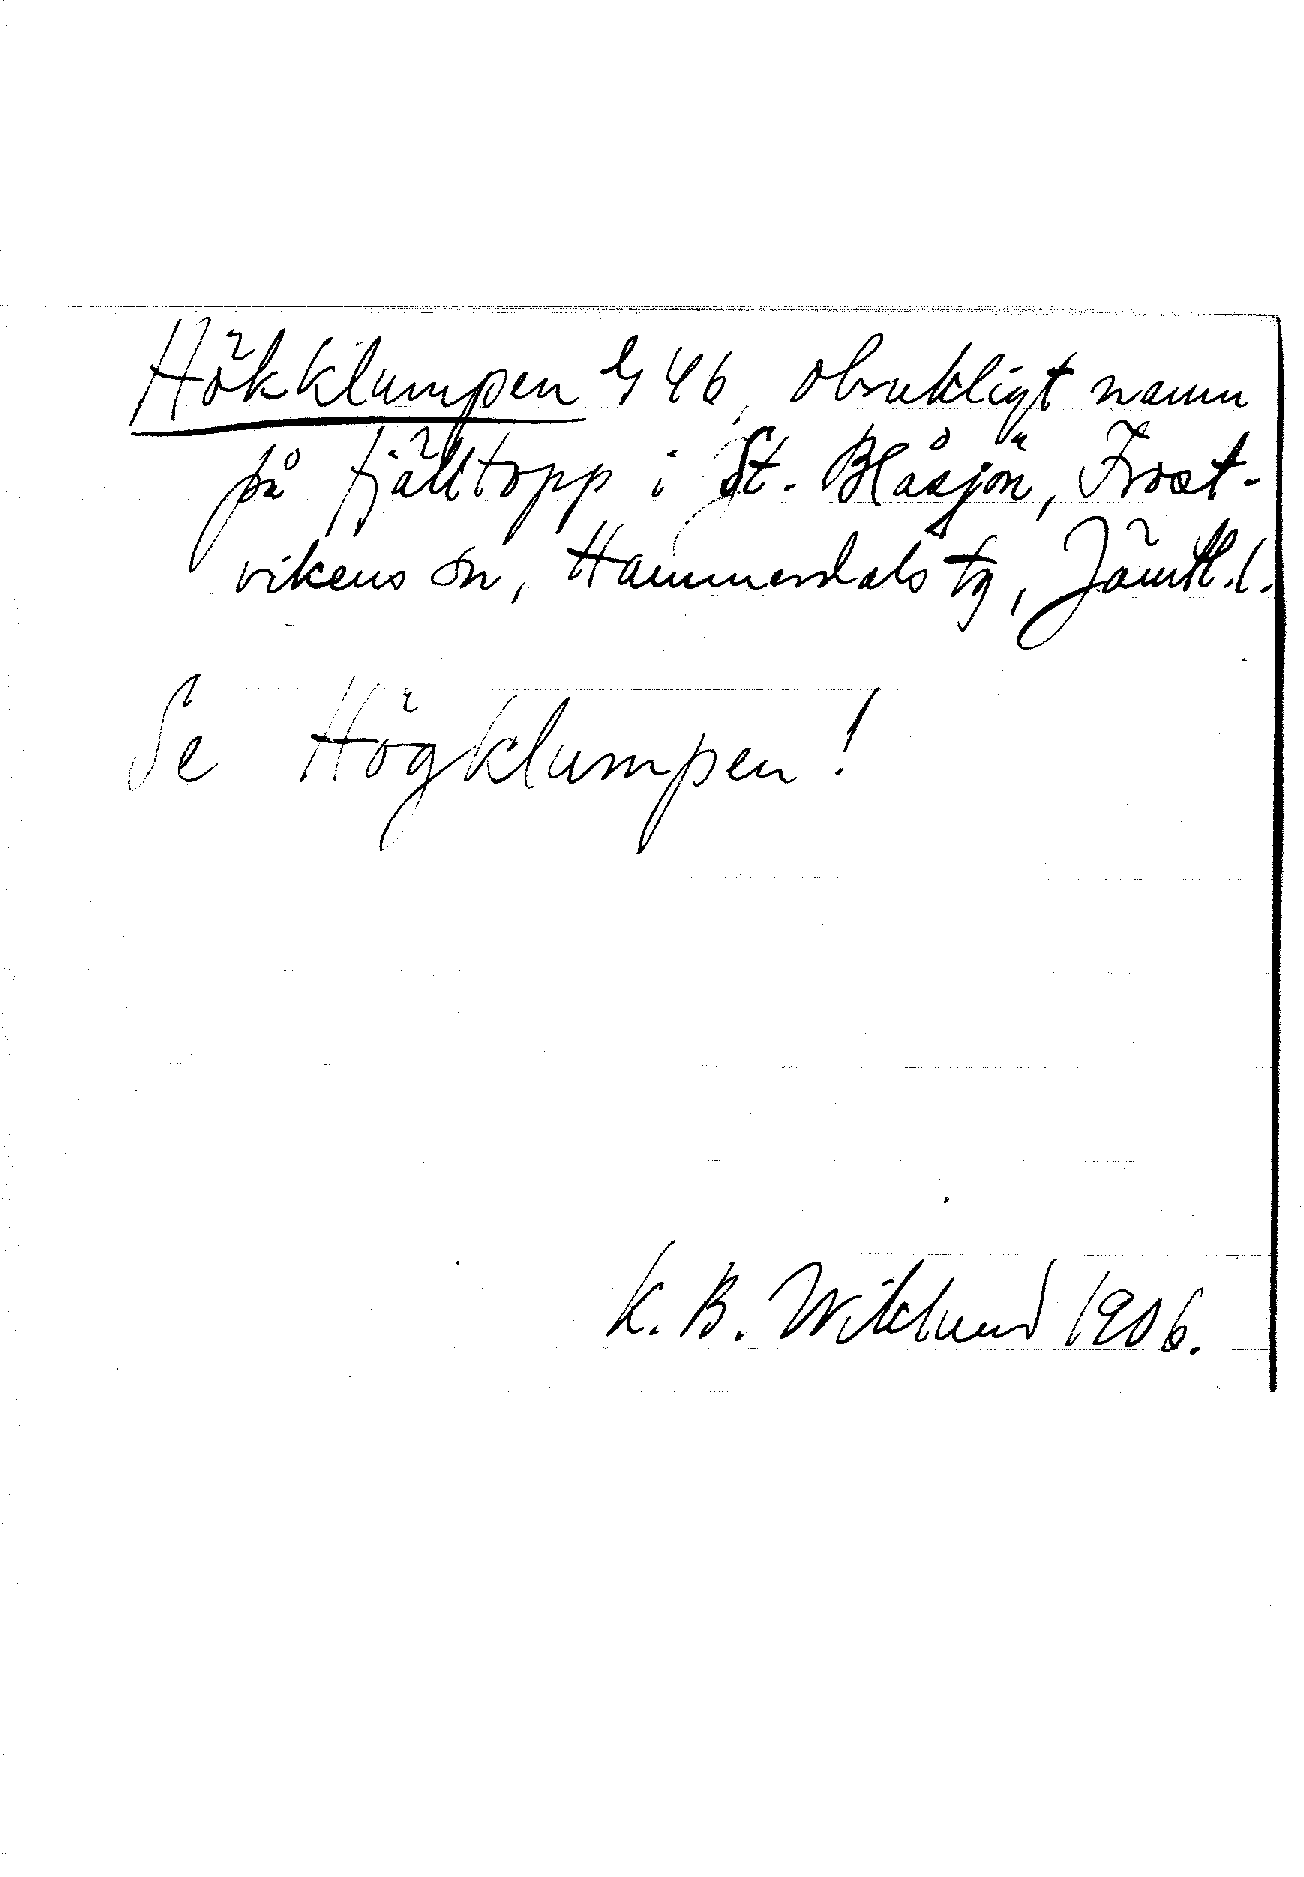 Hökklumpen G 46, obrukligt namn
på fjälltopp i St. Blåsjön, Frost-
vikens sn, Hammerdals tg, Jämtl. l.
Se Högklumpen!
K. B. Wiklund 1906.